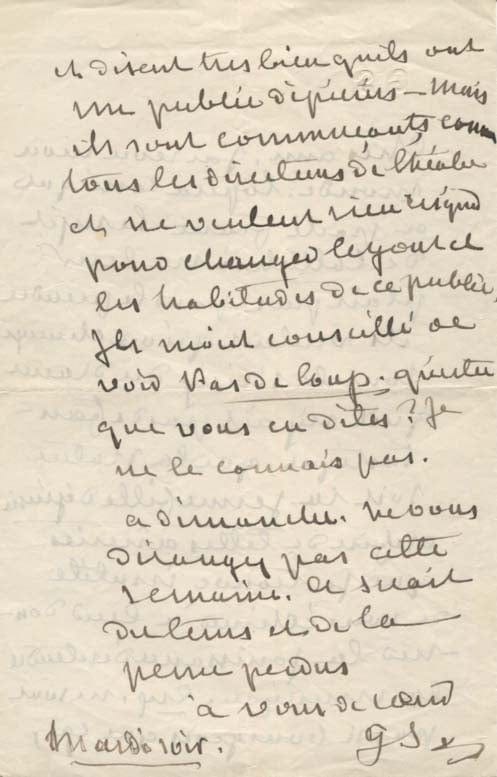 et disent très bien qu'ils ont
un public d'épiciers – mais
ils sont commerçants comme
tous les directeurs de théatre
et ne veulent rien risquer
pour changer le gout et
les habitudes de ce public.
Ils m'ont conseillé de
voir Pas de loup. qu'est ce
que vous en dites ? Je
ne le connais pas.
a dimanche. ne vous
dérangez pas cette
semaine. ce serait
du tems et de la
peine perdus
à vous de cœur
Mardi soir. G S